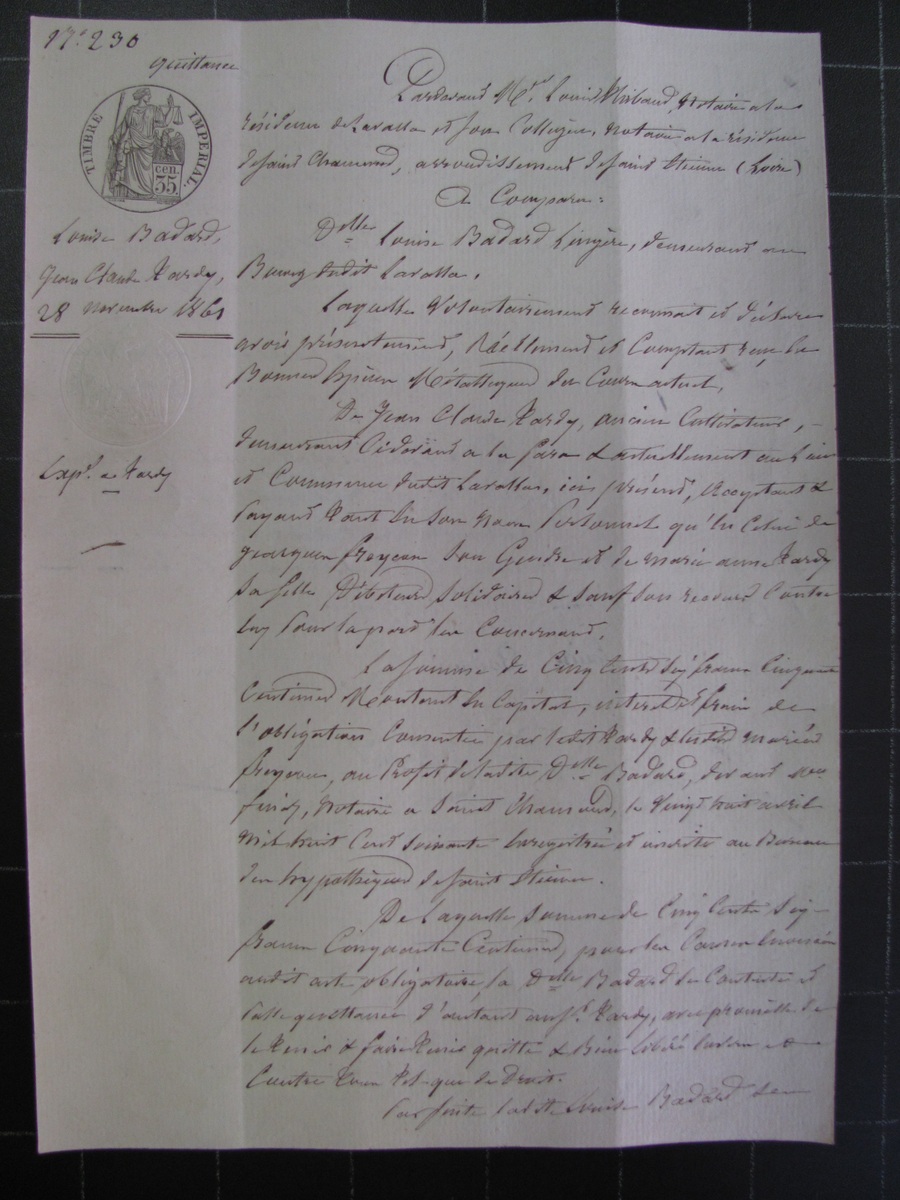 N° 230
quittance
TIMBRE IMPERIAL
cen.
35
Louise Badard,
Jean Claude Hardy,
28 novembre 1861
Exp. ne Hardy
Pardevant Me Louis Mirbaud, Notaire a la
résidence de Lavalla et son Collègue, notaire a la résidence
de Saint Chamond, arrondissement de Saint Etienne (Loire)
A Comparu:
Delle Louise Badard Lingère, demeurant au
Bourg dudit Lavalla.
Laquelle Volontairement reconnait et déclare
avoir présentement, Réellement et Comptant reçu en
Bonnes Espèces Métalliques du Cours actuel,
De Jean Claude Hardy, ancien Cultivateur,
demeurant Cidevant a la fara & actuellement au Lieu
et Commune dudit Lavalla, ici présent, Acceptant &
Payant tant en son nom Personnel qu'en Celui de
freycon son Gendre et de marie anne Hardy
Sa fille Débiteurs Solidaires & Sauf son recours Contre
eux Pour la part les Concernant,
La Somme de Cinq Cents Six francs Cinquante
Centimes Montant en Capital, intérêts et frais de
l'obligation Consentie par ledit Hardy & lesdits mariés
freycon, au Profit de ladite Delle Badard, devant Me
finaz, Notaire a Saint Chamond, le Vingt huit avril
Mil huit Cent Soixante Enregistrée et inscrite au Bureau
des hypothèques de Saint Etienne.
De Laquelle Somme de Cinq Cents Six
francs Cinquante Centimes, pour les Causes Enoncées
audit acte obligatoire, la Delle Badard Se Contente et
Passe quittance d'autant audt. Hardy, avec promesse de
le tenir & faire tenir quitte & Bien libéré Envers &
Contre tous Et qui de Droit.
Par Suite ladite Louise Badard Se